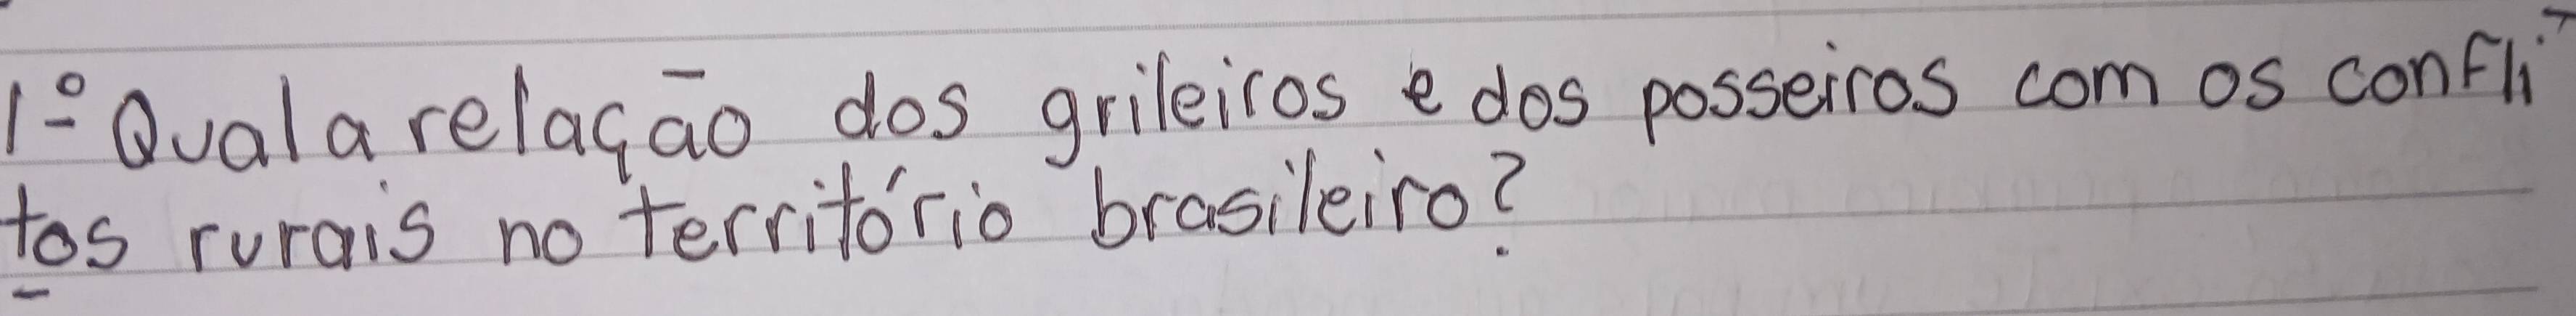 1º Qual a relação dos grileiros e dos posseiros com os confli-
tos rurais no território brasileiro?